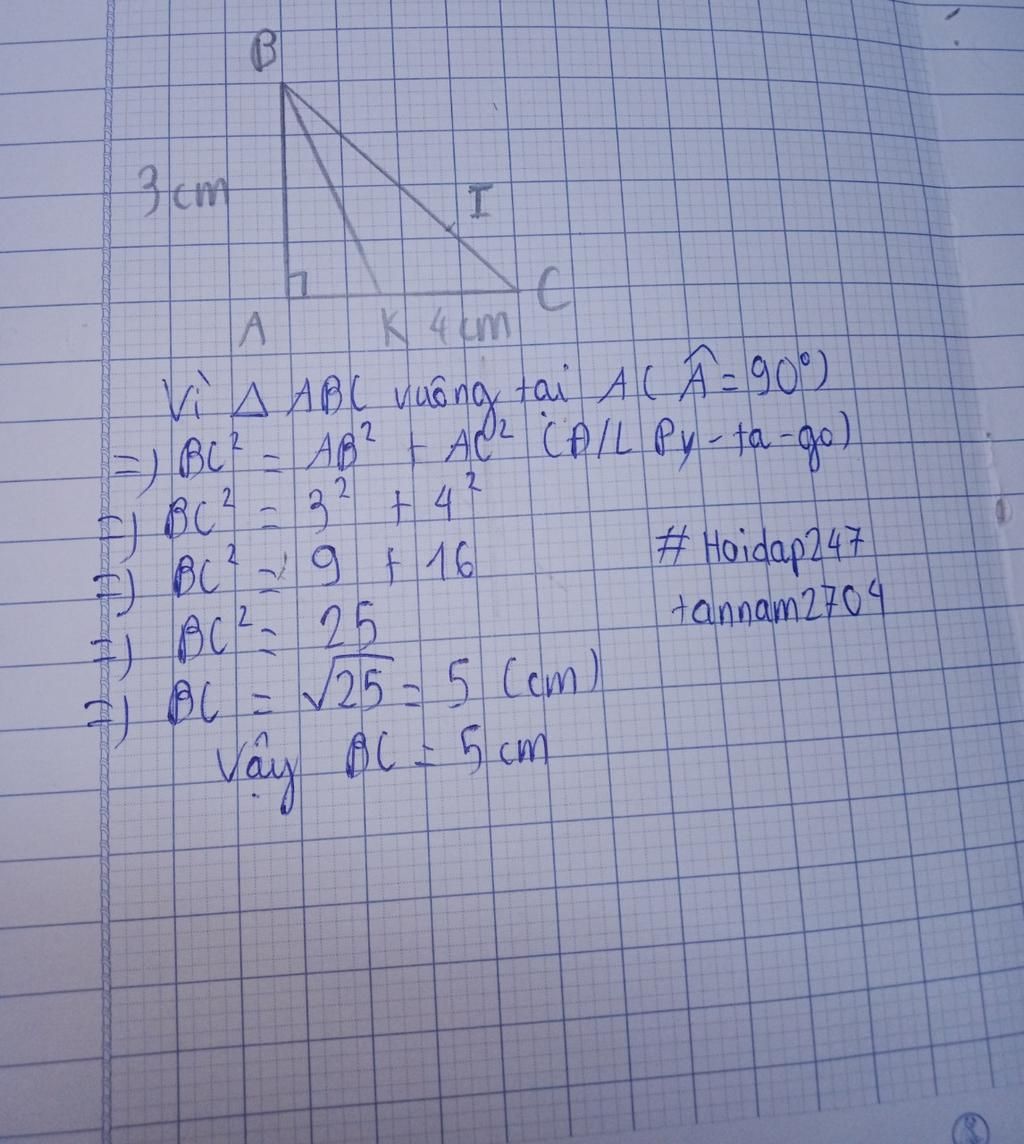 B
3 cm
I
A K 4 cm C
Vì Δ ABC vuông tại A( Â = 90°)
=) BC² = AB² + AC² (Đ/L Py-ta-go)
=) BC² = 3² + 4²
=) BC² = 9 + 16
=) BC² = 25
=) BC = √25 = 5 (cm)
Vậy BC = 5 cm
# Hoidap247
tannam2704